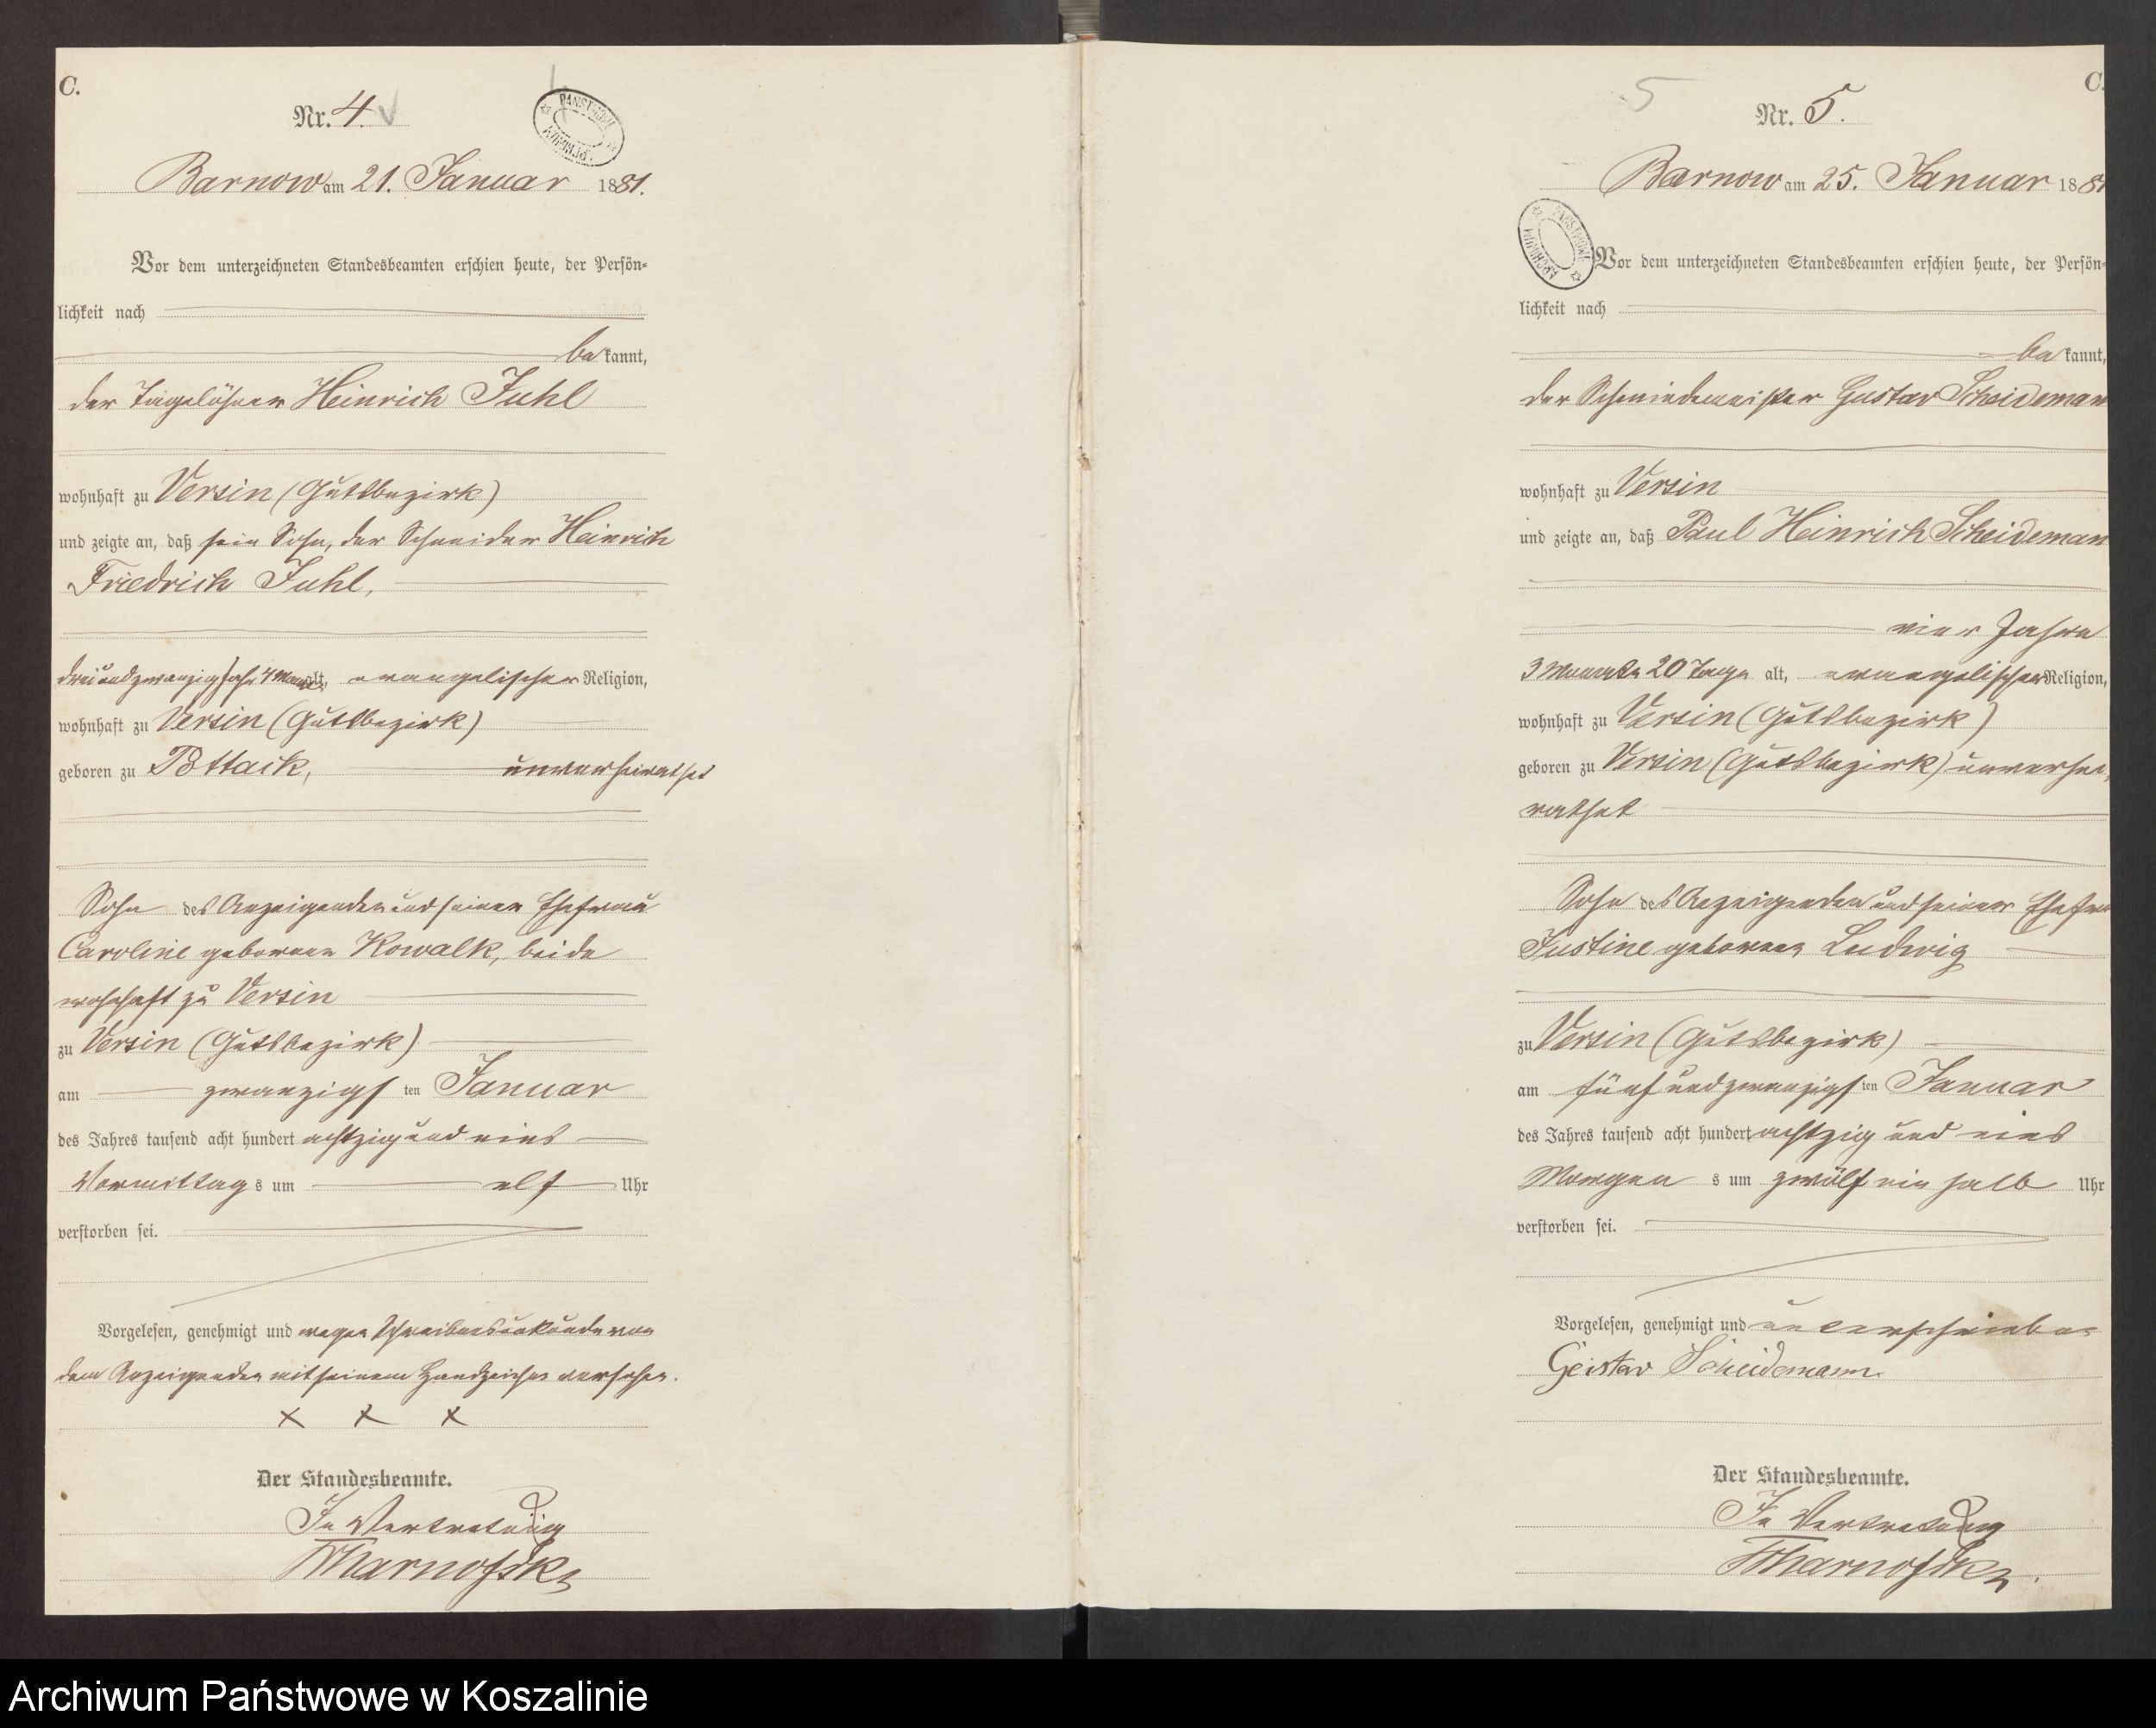 C.
Nr. 4.
Barnow am 21. Januar 1881.
Vor dem unterzeichneten Standesbeamten erschien heute, der Persön-
lichkeit nach
bekannt,
der Tagelöhner Heinrich Juhl
wohnhaft zu Versin (Gutsbezirk)
und zeigte an, daß sein Sohn, der Schneider Heinrich
Friedrich Juhl,
dreiundzwanzig Jahr 4 Monate alt, evangelischer Religion,
wohnhaft zu Versin (Gutsbezirk)
geboren zu Pottack, unverheirathet
Sohn des Anzeigenden und seiner Ehefrau
Caroline geborenen Kowalk, beide
wohnhaft zu Versin
zu Versin (Gutsbezirk)
am zwanzigsten Januar
des Jahres tausend acht hundert achtzig und eins
Vormittags um elf Uhr
verstorben sei.
Vorgelesen, genehmigt und wegen Schreibensunkunde von
dem Anzeigenden mit seinem Handzeichen versehen.
x x x
Der Standesbeamte.
In Vertretung
5
C.
Nr. 5.
Barnow am 25. Januar 1881
Vor dem unterzeichneten Standesbeamten erschien heute, der Persön-
lichkeit nach
bekannt,
der Schmiedemeister Gustav Scheideman
wohnhaft zu Versin
und zeigte an, daß Paul Heinrich Scheideman
vier Jahre
3 Monate 20 Tage alt, evangelischer Religion,
wohnhaft zu Versin (Gutsbezirk)
geboren zu Versin (Gutsbezirk) unverhei-
rathet
Sohn des Anzeigenden und seiner Ehefrau
Justine geborenen Ludwig
zu Versin (Gutsbezirk)
am fünfundzwanzigsten Januar
des Jahres tausend acht hundert achtzig und eins
Morgens um zwölf ein halb Uhr
verstorben sei.
Vorgelesen, genehmigt und unterschrieben
Gustav Scheidemann
Der Standesbeamte.
In Vertretung
Archiwum Państwowe w Koszalinie